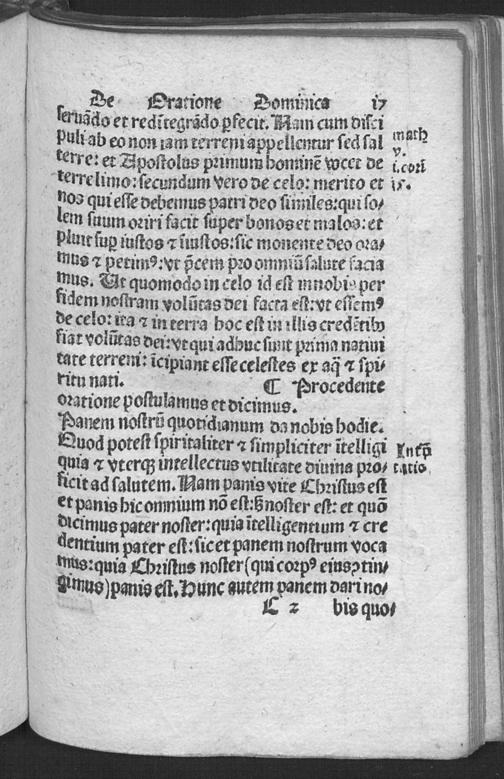 De Oratione Dominica 17
seruãdo et redĩtegrãdo ꝑfecit. Nam cum disci
puli ab eo non iam terreni appellentur sed sal
terre: et Apostolus primum hominẽ vocet de
terre limo: secundum vero de celo: merito et
nos qui esse debemus patri deo similes: qui so⸗
lem suum oriri facit super bonos et malos: et
pluit suꝑ iustos ⁊ iĩustos: sic monente deo ora⸗
mus ⁊ petimꝰ: vt p̃cem pro omniũ salute facia
mus. Ut quomodo in celo id est in nobis per
fidem nostram volũtas dei facta est: vt essemꝰ
de celo: ita ⁊ in terra hoc est in illis credẽtibꝰ
fiat volũtas dei: vt qui adhuc sunt prima natiui
tate terreni: ĩcipiant esse celestes ex aq̃ ⁊ spi⸗
ritu nati. ¶ Procedente
oratione postulamus et dicimus.
Panem nostrũ quotidianum da nobis hodie.
Quod potest spiritaliter ⁊ simpliciter ĩtelligi
quia ⁊ vterqꝫ intellectus vtilitate diuina pro⸗
ficit ad salutem. Nam panis vite Christus est
et panis hic omnium nõ est: sꝫ noster est: et quõ
dicimus pater noster: quia ĩtelligentium ⁊ cre
dentium pater est: sic et panem nostrum voca
mus: quia Christus noster (qui corpꝰ eiusꝫ tin⸗
gimus) panis est. Hunc autem panem dari no⸗
C 2 bis quo⸗
math
v.
i. corĩ
15.
Intꝑ̃
tatio